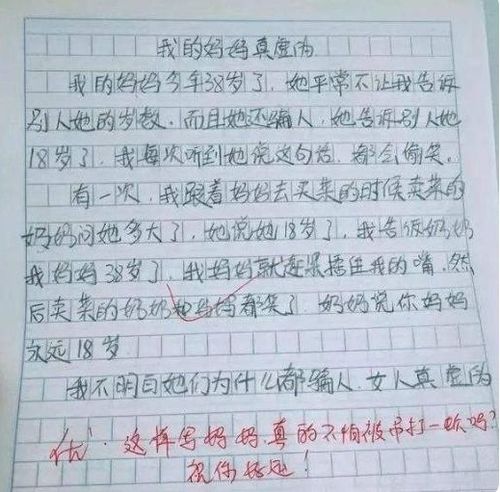 我的妈妈真虚伪
我的妈妈今年38岁了，她平常不让我告诉
别人她的岁数。而且她还骗人，她告诉别人她
18岁了，我每次听到她说这句话，都会偷笑。
有一次，我跟着妈妈去买菜的时候卖菜的
奶奶问她多大了，她说她18岁了，我告诉奶奶
我妈妈38岁了，我妈妈就赶紧捂住我的嘴，然
后卖菜的奶奶和妈妈都笑了，奶奶说你妈妈
永远18岁
我不明白她们为什么都骗人，女人真虚伪
优，这样写妈妈，真的不怕被吊打一顿吗？
祝你好运！